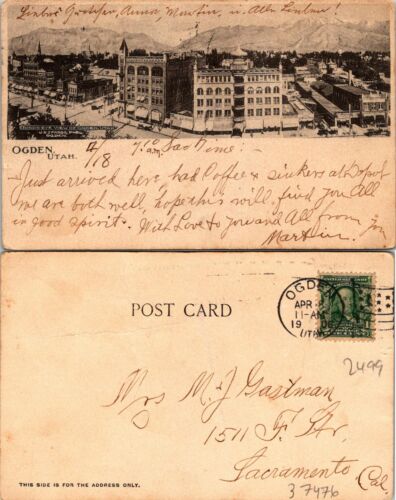 Liebes Grosspa, Anna, Martin, u. Alle Lieben!
OGDEN,
UTAH.
4/18 7 10 a.m. Sac time:
Just arrived here, had Coffee & sinkers at Depot
we are both well, hope this will find you All
in good spirits. With Love to you and All from you
Martin.
POST CARD
OGDEN
APR
11-AM
19
UTAH
2499
Mrs M. J. Gastman
1511 F. Str.
Sacramento
Cal.
THIS SIDE IS FOR THE ADDRESS ONLY.
37476